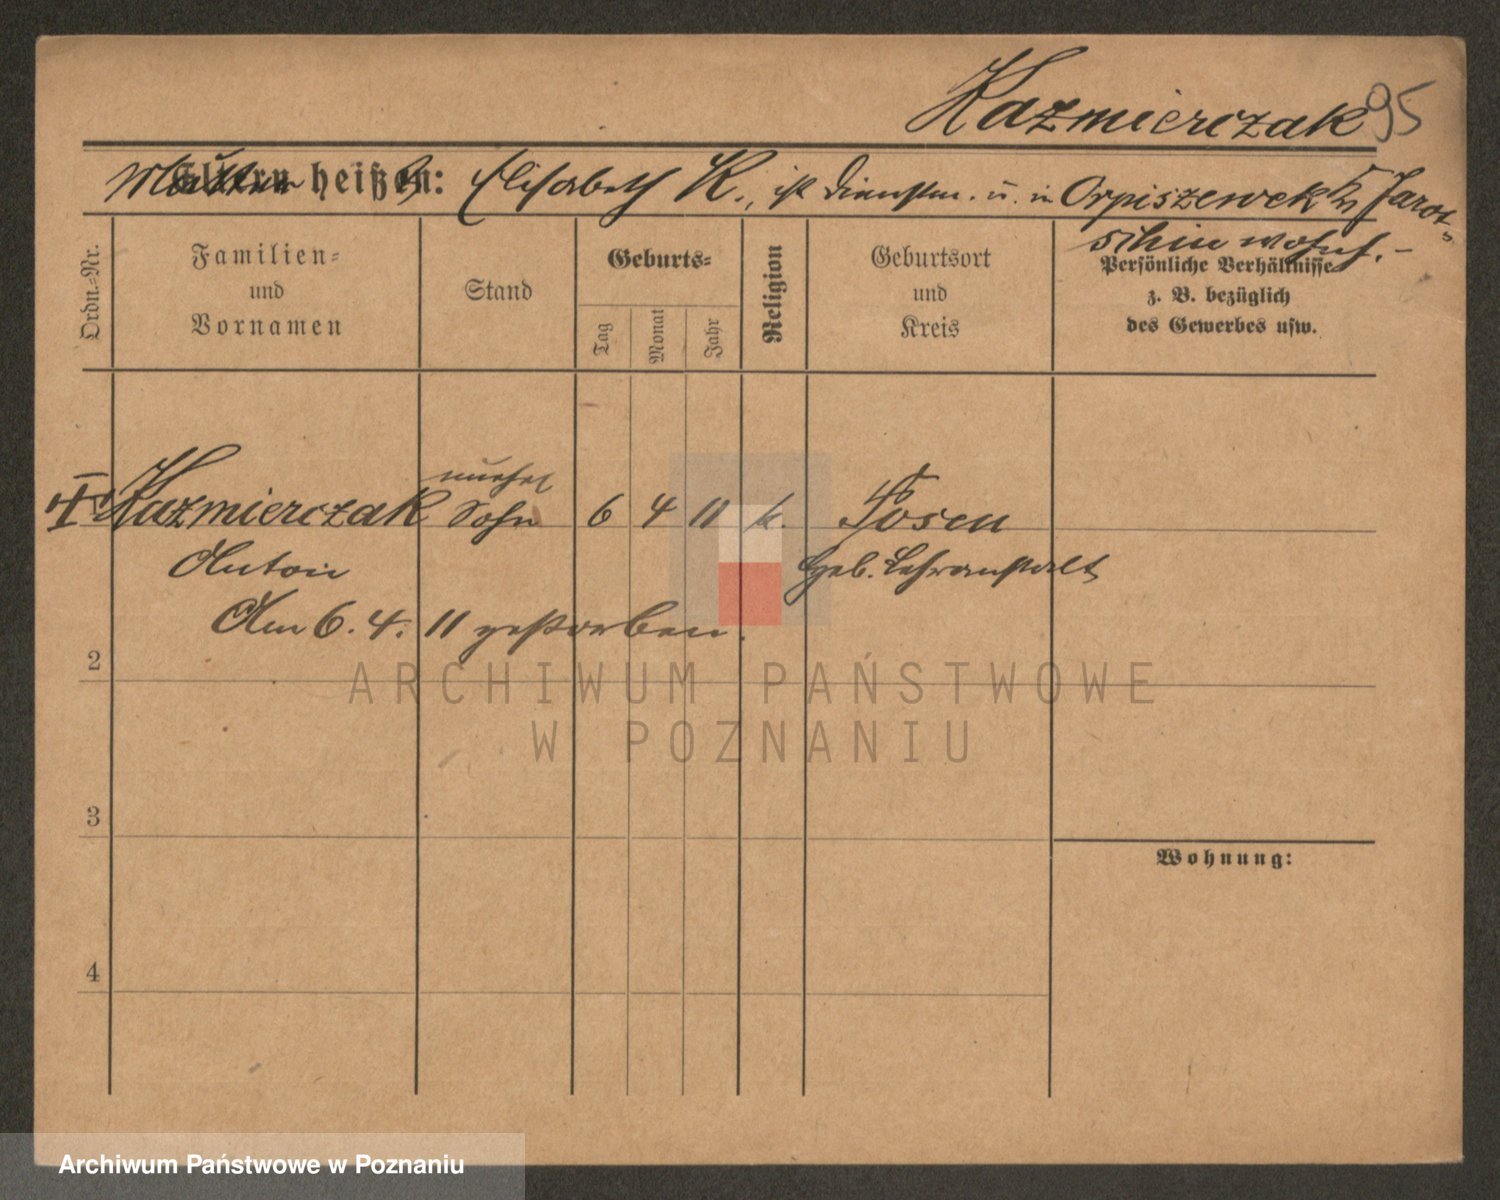 Kazmierczak 95
Mutter heißt: Elisabeth K., ist Dienstm. u. in Orpiszewek Kr. Jarot-
schin wohnh. -
Ordn.-Nr.
Familien-
und
Vornamen
Stand
Geburts-
Tag
Monat
Jahr
Religion
Geburtsort
und
Kreis
Persönliche Verhältnisse
z. B. bezüglich
des Gewerbes usw.
unehel
Kazmierczak Sohn 6 4 11 k. Posen
Anton Heb. Lehranstalt
Am 6. 4. 11 gestorben.
2
3
4
Wohnung:
ARCHIWUM PAŃSTWOWE
W POZNANIU
Archiwum Państwowe w Poznaniu